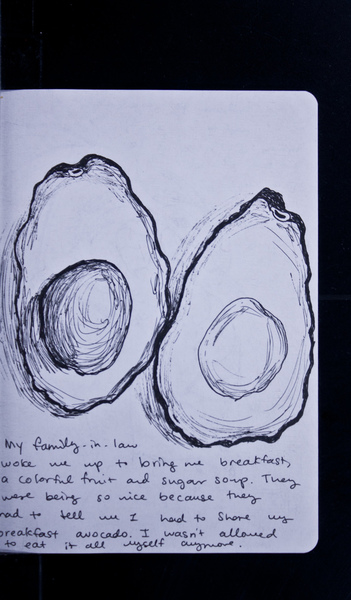 My family-in-law
woke me up to bring me breakfast,
a colorful fruit and sugar soup. They
were being so nice because they
had to tell me I had to share my
breakfast avocado. I wasn't allowed
to eat it all myself anymore.